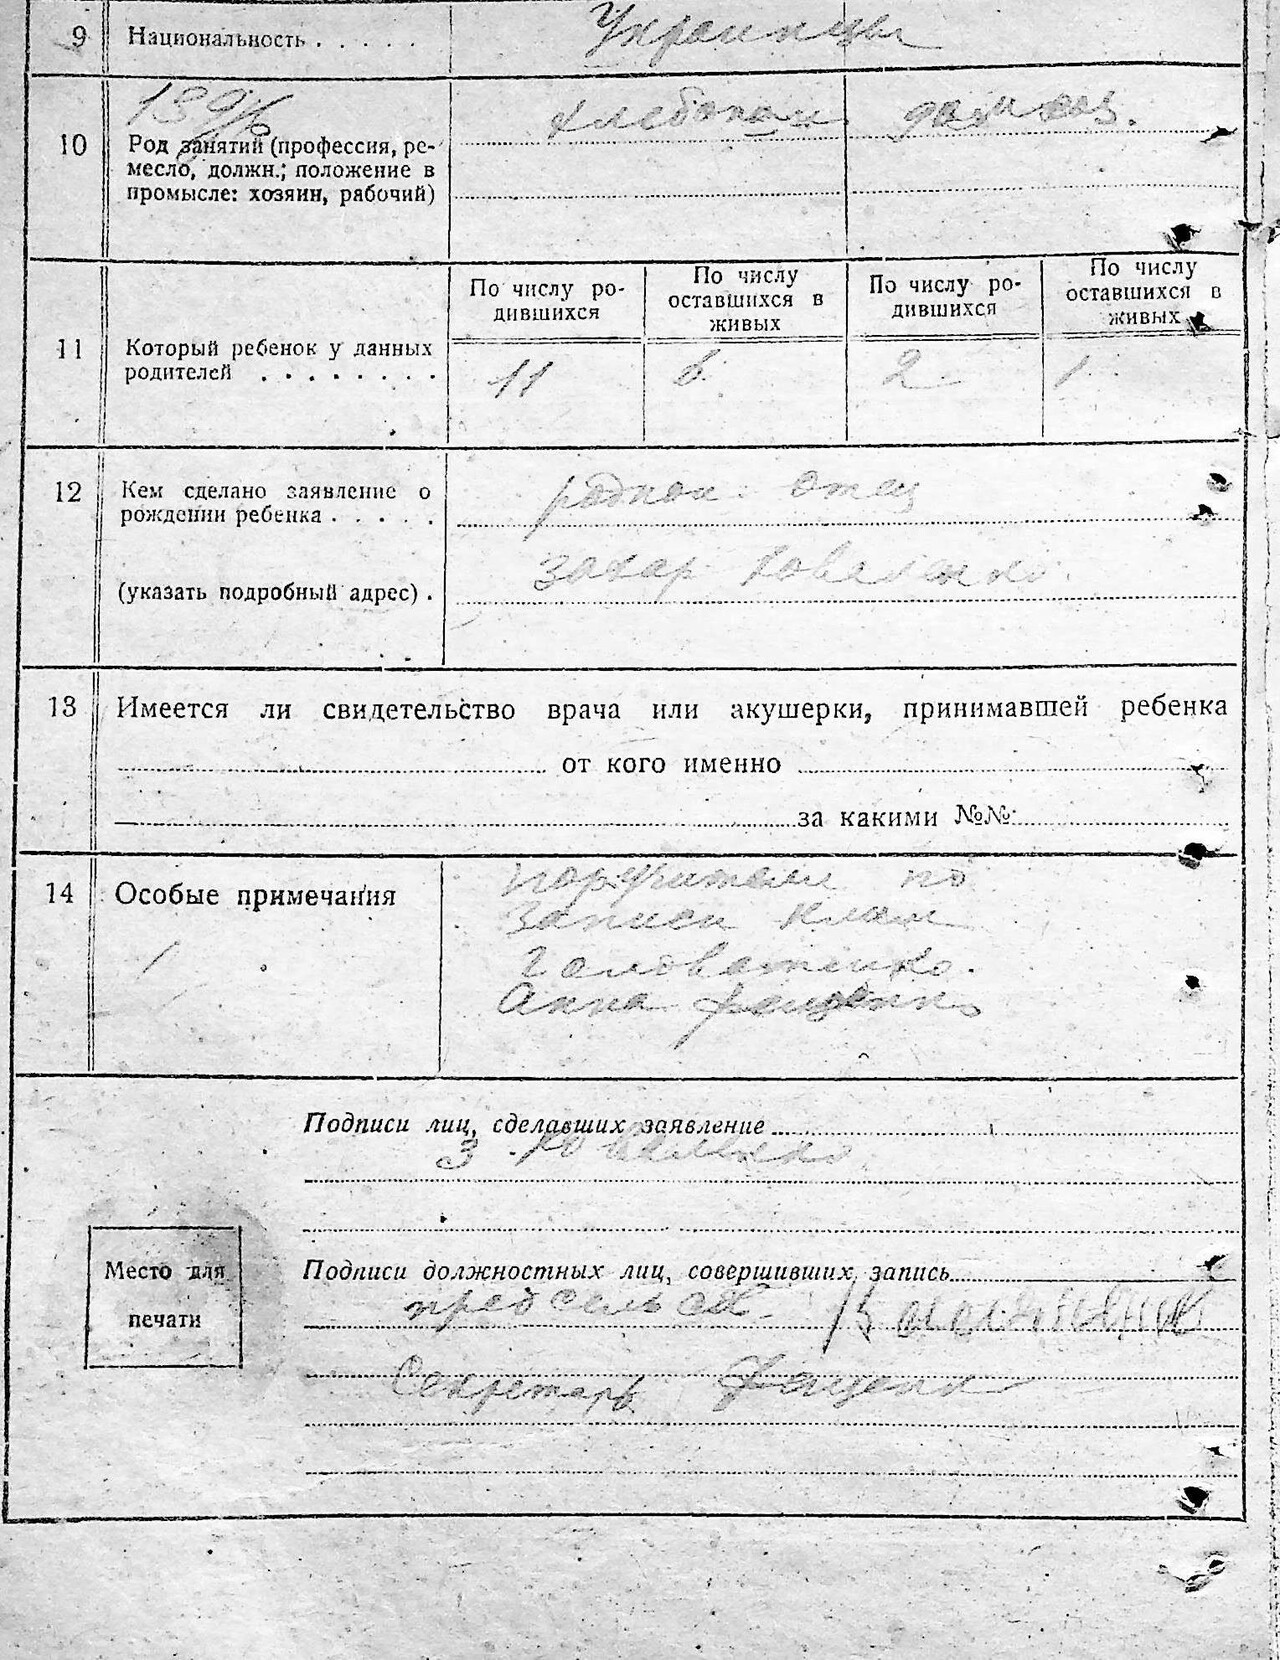 9 Национальность . . . . . Украинцы
10 Род занятий (профессия, ре-
месло, должн.; положение в
промысле: хозяин, рабочий)
хлебопаш домхоз.
11 Который ребенок у данных
родителей . . . . . . . .
По числу ро-
дившихся
По числу
оставшихся в
живых
По числу ро-
дившихся
По числу
оставшихся в
живых
11 2 1
12 Кем сделано заявление о
рождении ребенка . . . . .
(указать подробный адрес) .
родной отец
Захар Коваленко
13 Имеется ли свидетельство врача или акушерки, принимавшей ребенка
от кого именно
за какими №№
14 Особые примечания
поручители по
записи
Головатенко.
Анна Фещенко
Подписи лиц, сделавших заявление
З. Коваленко
Место для
печати
Подписи должностных лиц, совершивших запись
пред сельсов
Секретарь Фещенко